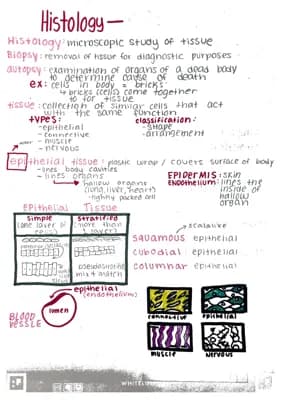 Histology—
Histology: microscopic study of tissue
Biopsy: removal of tissue for diagnostic purposes
autopsy: examination of organs of a dead body
to determine cause of death
ex: cells in body = bricks
↳ bricks (cells) come together
to for tissue
tissue: collection of similar cells that act
with the same function
types: classification:
-epithelial -shape
-connective -arrangement
- muscle
- nervous
epithelial tissue: plastic wrap / covers surface of body
-lines body cavities
- lines organs
↳ hallow organs
(lung, liver, heart)
-tightly packed cell
EPIDERMIS: skin
Endothelium: lines the
inside of
hallow
organ
Epithelial Tissue
simple
(one layer of
cells)
stratified
(more than
1 layer)
pseudostratified
mix + match
scalelike
squamous epithelial
cubodial epithelial
columnar epithelial
epithelial
(endothelium)
lumen
BLOOD
VESSLE
connective
epithelial
muscle
nervous